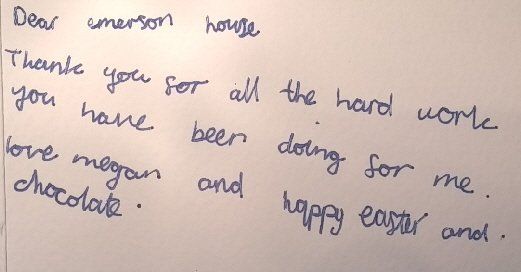 Dear emerson house
Thank you for all the hard work
you have been doing for me.
love megan and happy easter and.
chocolate.